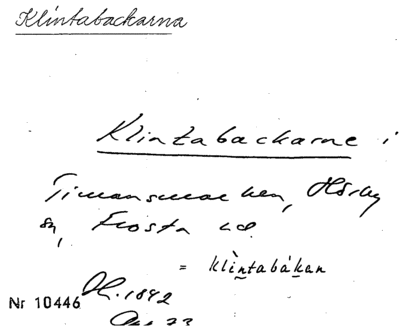 Klintabackarna
Klintabackarne i
Timansmarken, Hörby
sn, Frosta hd.
= klìntabákan
Nr 10446 1892